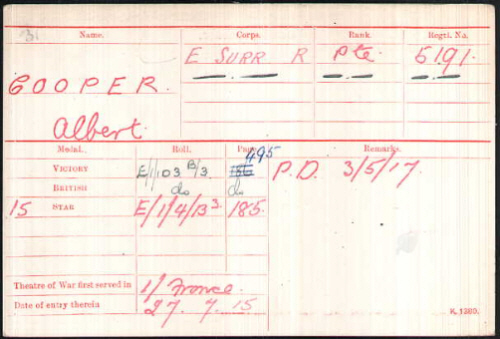 Name. Corps. Rank. Regtl. No.
E SURR R Pte. 5191.
COOPER.
Albert.
Medal. Roll. Page. Remarks.
VICTORY E/1/103 B/3 495 P.D. 3/5/17.
BRITISH do do
15 STAR E/1/4/B3 185.
Theatre of War first served in 1/ France.
Date of entry therein 27. 7. 15
K. 1380.